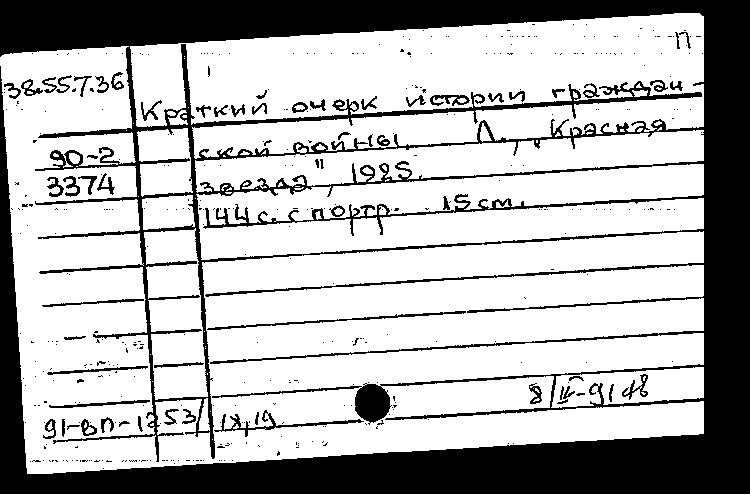 П
38.55.7.36
Краткий очерк истории граждан-
90-2 ской войны. Л., „Красная
3374 звезда", 1925.
144 с. с портр. 15 см.
8/IV-91
91-вп-1253/ IX, 19